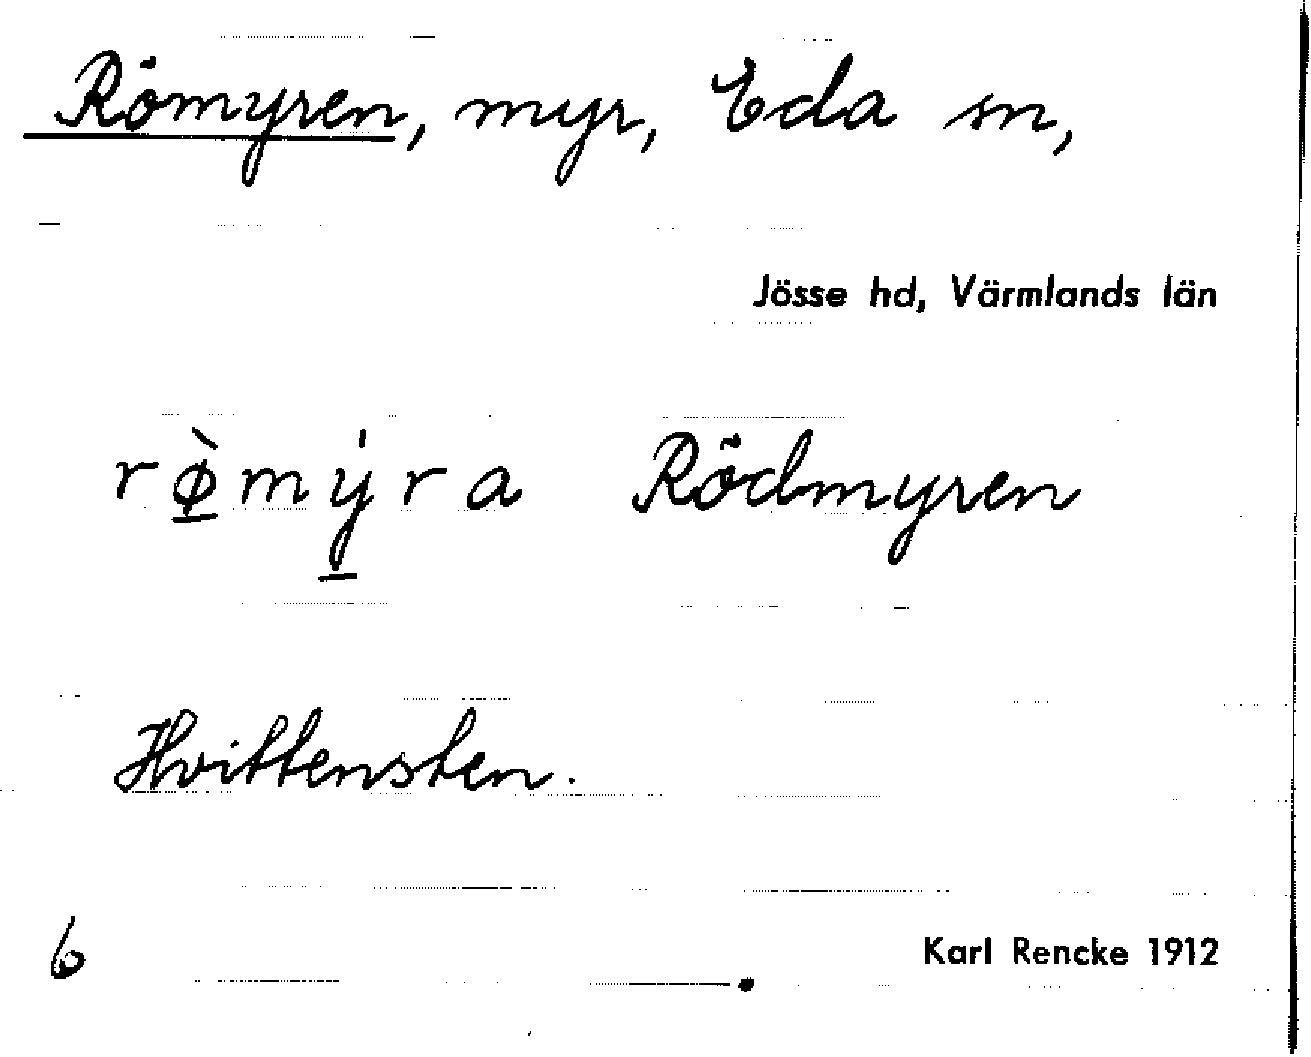 Römyren, myr, Eda sn,
Jösse hd, Värmlands län
rø̱̀mý̱ra Rödmyren
Hvittensten.
6
Karl Rencke 1912